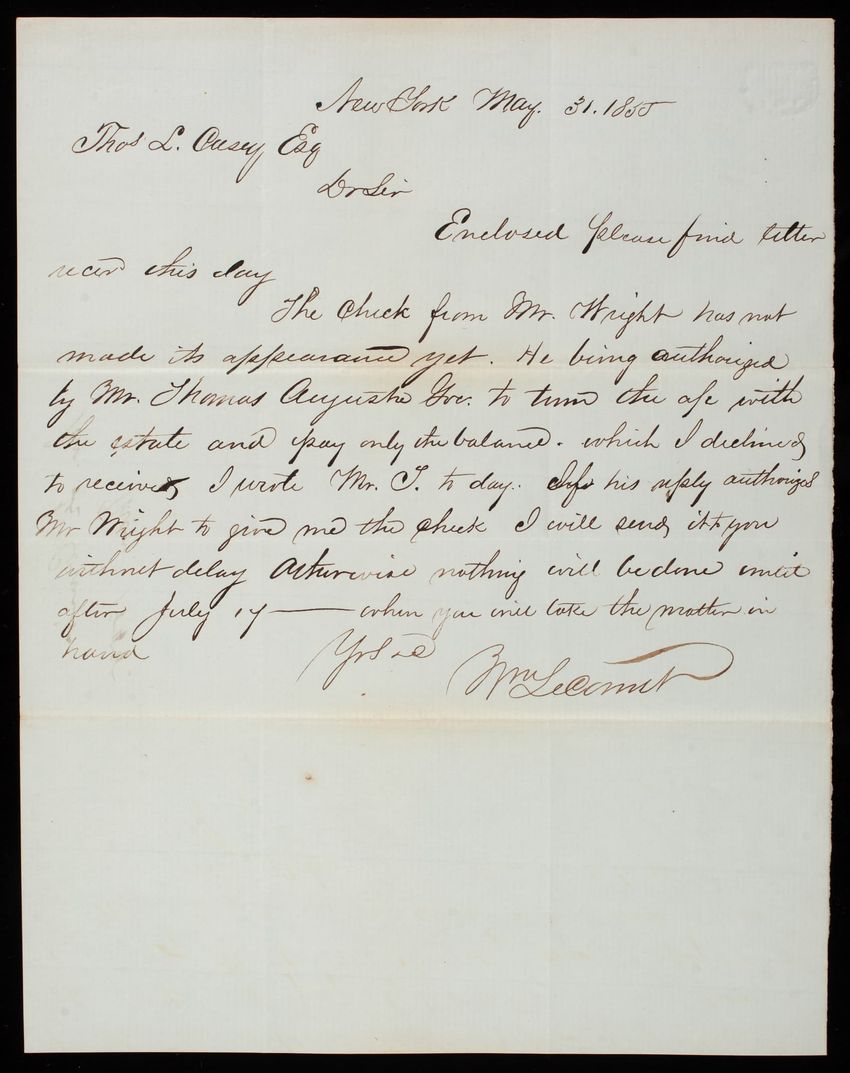 New York May. 31. 1855
Thos L. Casey Esq
Dr Sir
Enclosed please find letter
recd this day
The Check from Mr. Wright has not
made its appearance yet. He being authorized
by Mr. Thomas Augusta to turn the a/c with
the estate and pay only the balance. which I declined
to receive I wrote Mr. T. to day. If his reply authorizes
Mr Wright to give me the check I will send it to you
without delay Otherwise nothing will be done until
after July 17 — when you will take the matter in
hand
Yrs &c
Wm LeComte